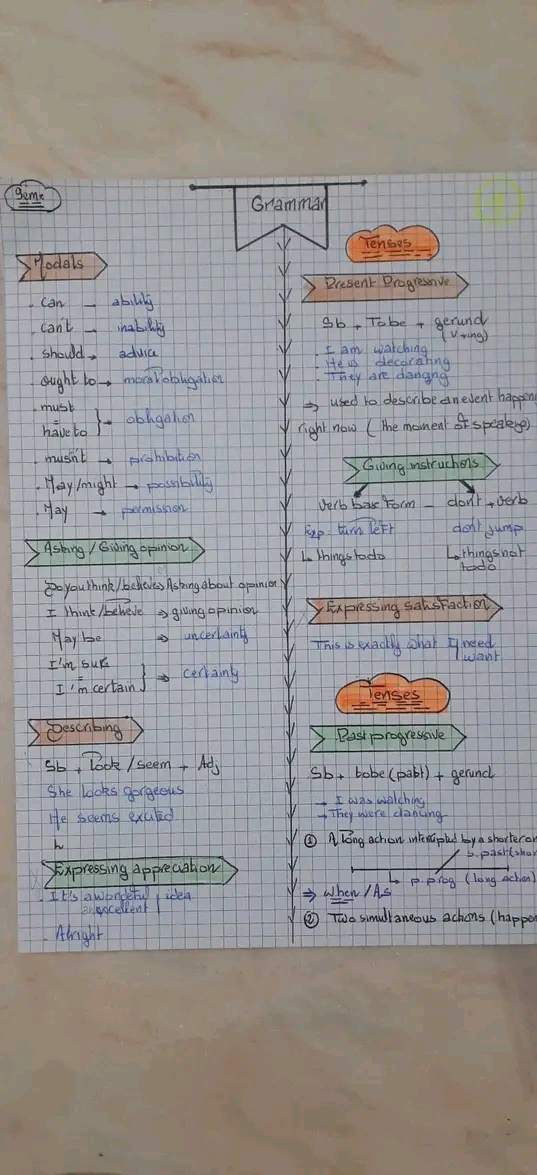 9ème
Grammar
Modals
. can → ability
. can't → inability
. should → advice
. ought to → moral obligation
. must
=
have to } → obligation
. musn't → prohibition
. May/might → possibility
. May → permission
Asking / Giving opinion
Do you think/believe → Asking about opinion
I think/believe → giving opinion
May be → uncertainty
I'm sure
=
I'm certain } ⇒ certainty
Describing
Sb + look/seem + Adj
She looks gorgeous
He seems excited
Expressing appreciation
. It's a wonderful idea
an excellent
. Alright
Tenses
Present Progressive
Sb + To be + gerund
(V+ing)
. I am watching
. He is decorating
. They are dancing
⇒ used to describe an event happen
right now ( the moment of
Giving instructions
verb bas form — dont + verb
Exp: turn left dont jump
↳ things to do ↳ things not
todo
Expressing satisfaction
This is exactly what I need
want
Tenses
Past progressive
Sb + tobe (past) + gerund
→ I was watching
→ They were dancing
① A long action interrupted by a shorter on
s. past (shor
↳ p. prog (long action)
⇒ when / As
② Two simultaneous actions (happen